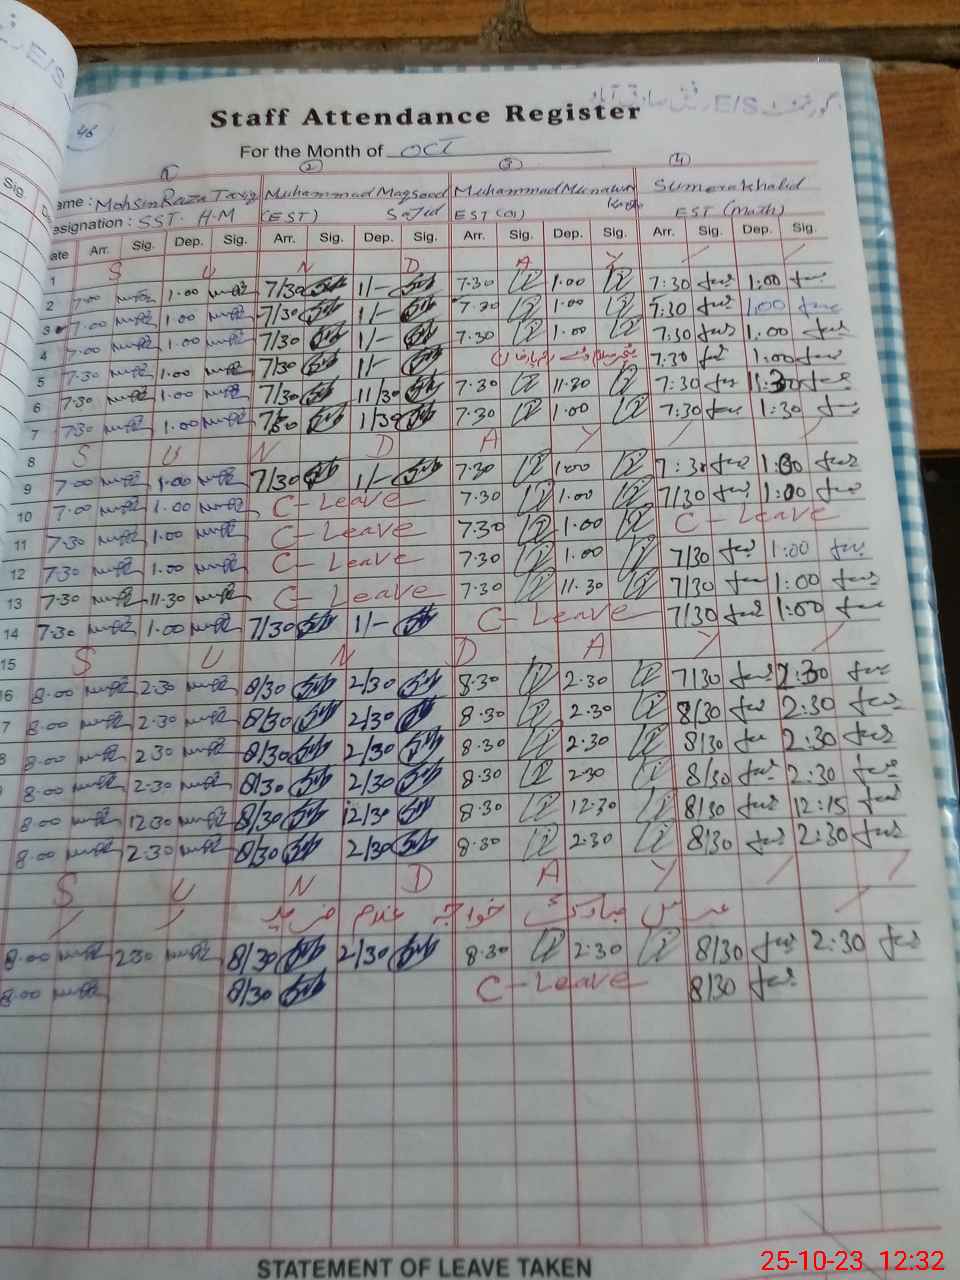 46
Staff Attendance Register
For the Month of OCT
1 2 3 4
ame : Mohsin Raza Tariq Muhammad Maqsood Muhammad Munawar Sumera Khalid
esignation : SST. H.M (EST) Sajid EST EST (Math)
ate Arr. Sig. Dep. Sig. Arr. Sig. Dep. Sig. Arr. Sig. Dep. Sig. Arr. Sig. Dep. Sig.
1 S U N D A Y
2 7.00 1.00 7/30 1/- 7.30 1.00 7:30 1:00
3 7.00 1.00 7/30 1/- 7.30 1.00 7:30 1:00
4 7.00 1.00 7/30 1/- 7.30 1.00 7:30 1:00
5 7.30 1.00 7/30 1/- 7:30 1:00
6 7.30 1.00 7/30 11/30 7.30 11.30 7:30 11:30
7 7.30 1.00 7/30 1/30 7.30 1.00 7:30 1:30
8 S U N D A Y
9 7.00 1.00 7/30 1/- 7.30 1.00 7:30 1:00
10 7.00 1.00 C-Leave 7.30 1.00 7/30 1:00
11 7.30 1.00 C-Leave 7.30 1.00 C-Leave
12 7.30 1.00 C-Leave 7.30 1.00 7/30 1:00
13 7.30 11.30 C-Leave 7.30 11.30 7/30 1:00
14 7.30 1.00 7/30 1/- C-Leave 7/30 1:00
15 S U N D A Y
16 8.00 2.30 8/30 2/30 8.30 2.30 7/30 2:30
7 8.00 2.30 8/30 2/30 8.30 2.30 8/30 2:30
8 8.00 2.30 8/30 2/30 8.30 2.30 8/30 2:30
8.00 2.30 8/30 2/30 8.30 2.30 8/30 2:30
8.00 12.30 8/30 12/30 8.30 12.30 8/30 12:15
8.00 2.30 8/30 2/30 8.30 2.30 8/30 2:30
S U N D A Y
عرس مبارک خواجہ غلام فرید
8.00 2.30 8/30 2/30 8.30 2.30 8/30 2:30
8.00 8/30 C-Leave 8/30
STATEMENT OF LEAVE TAKEN
25-10-23 12:32